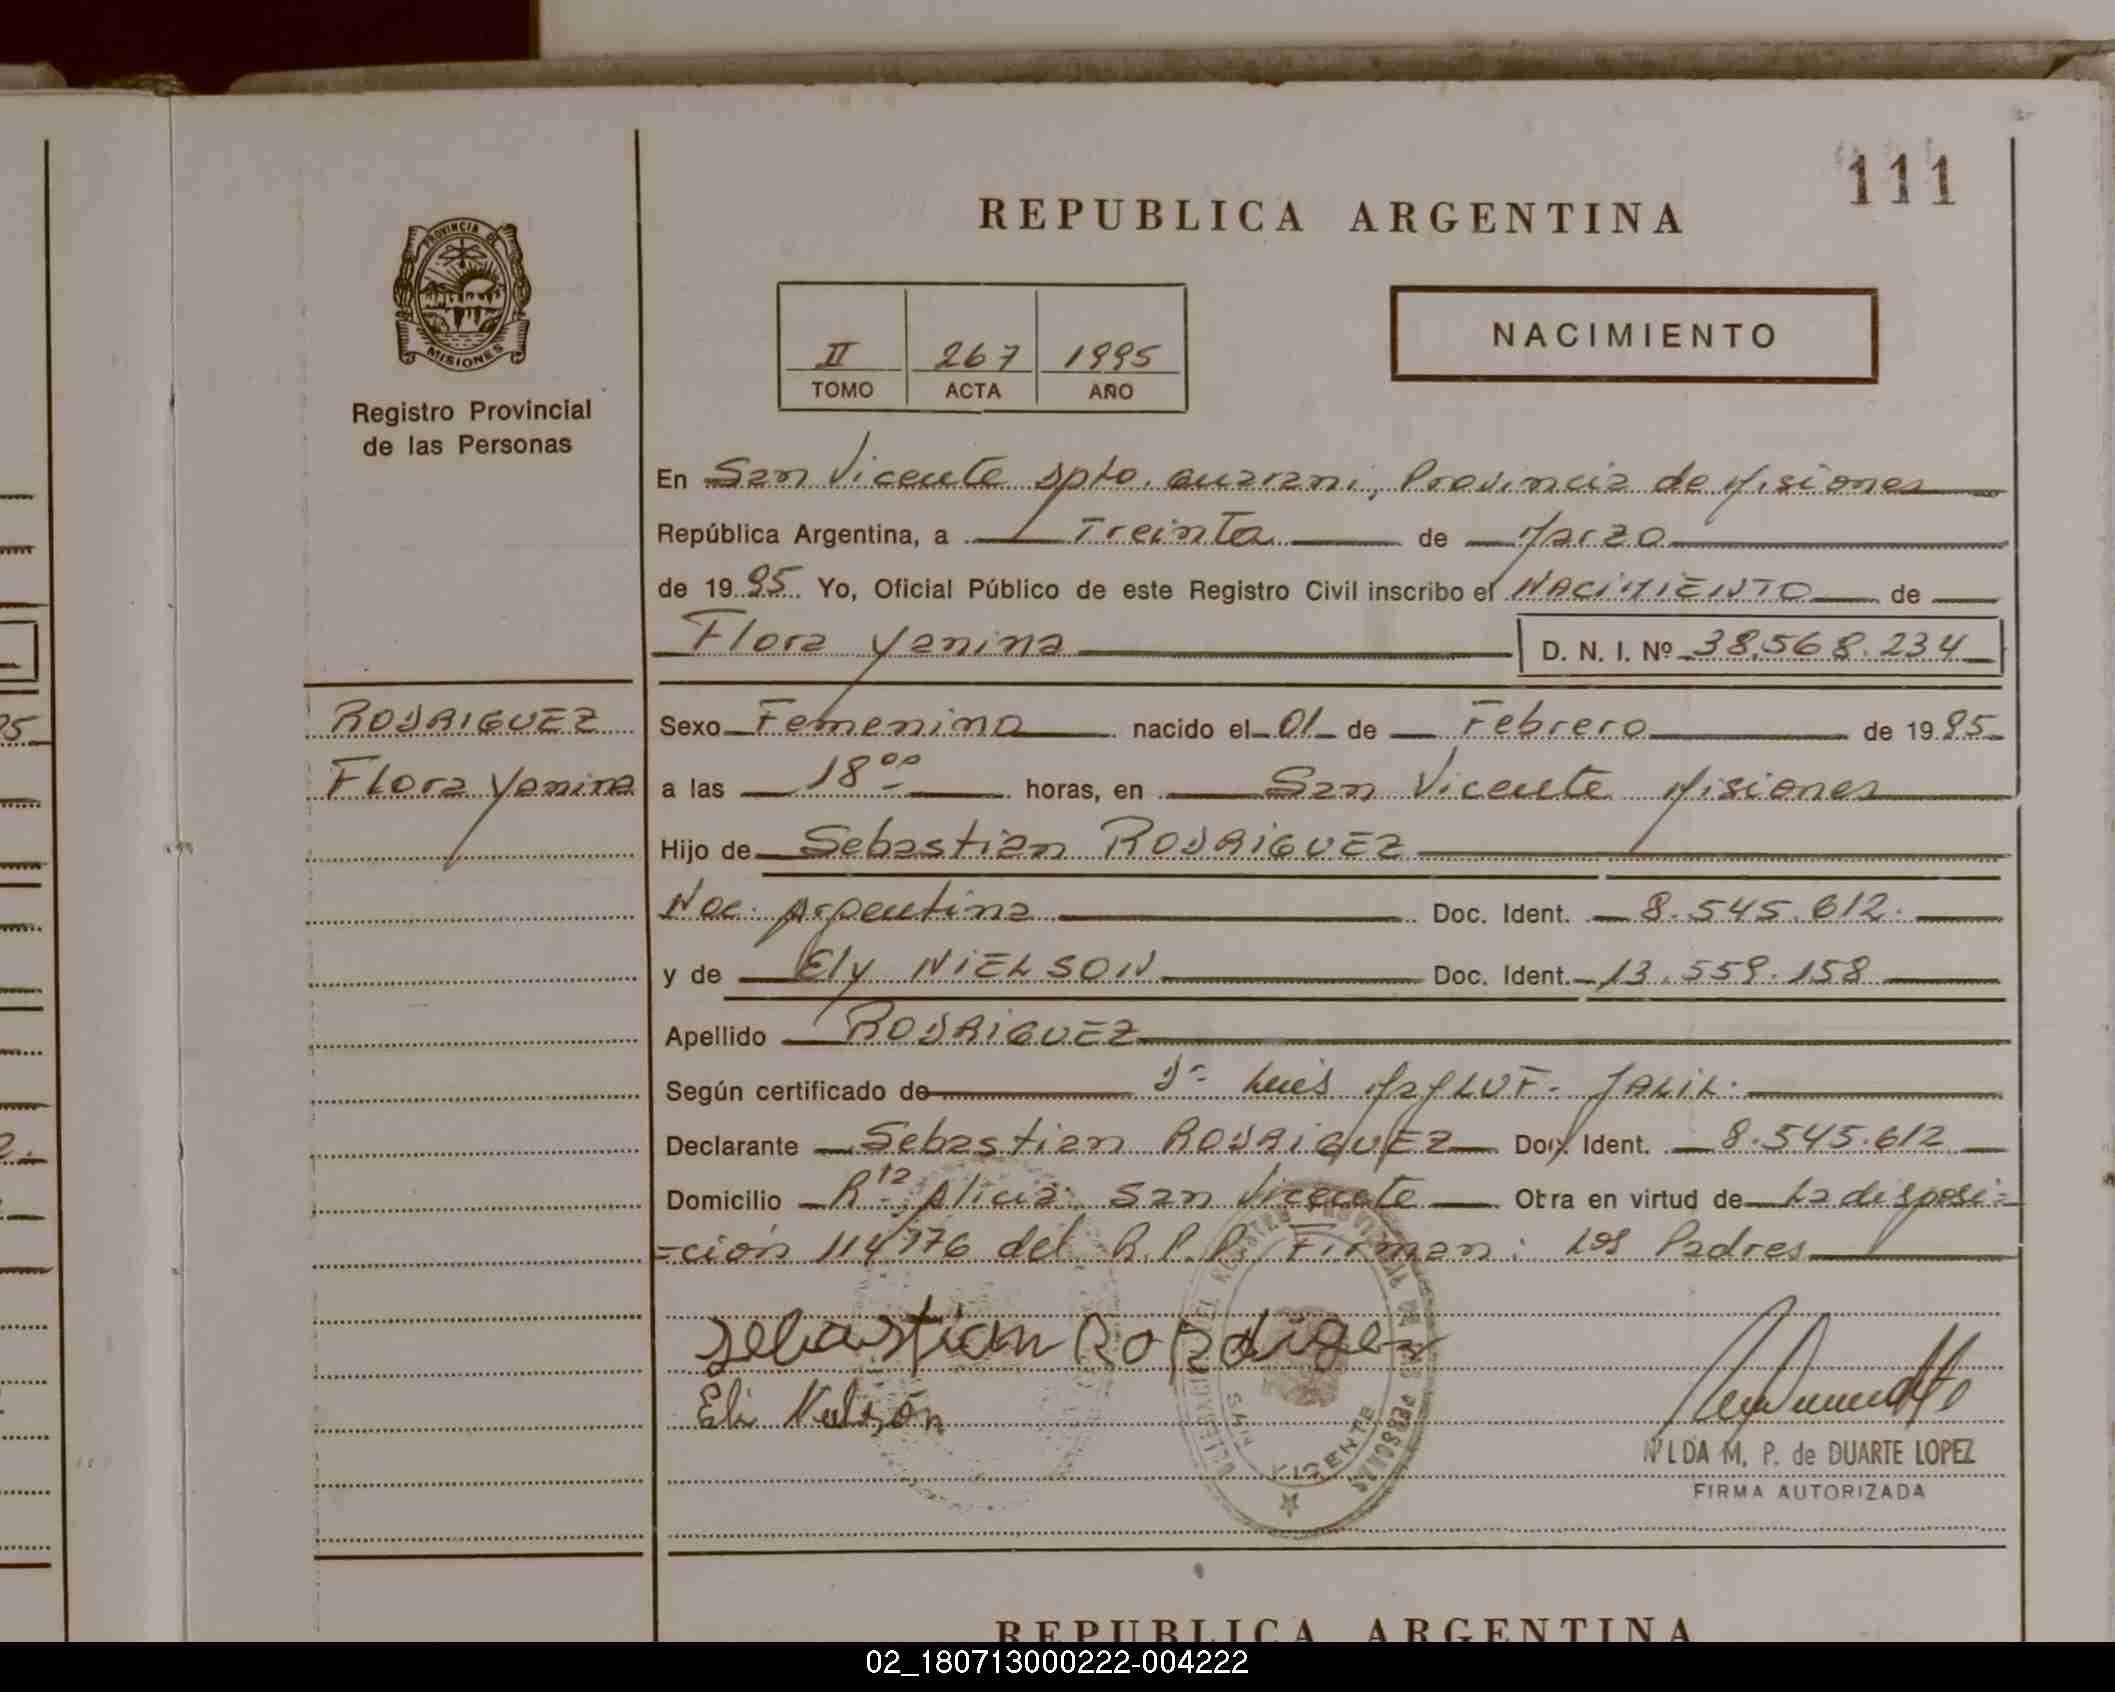 111
REPUBLICA ARGENTINA
PROVINCIA DE
MISIONES
Registro Provincial
de las Personas
II 267 1995
TOMO ACTA AÑO
NACIMIENTO
En San Vicente Dpto. Guarani, Provincia de Misiones
República Argentina, a Treinta de Marzo
de 1995. Yo, Oficial Público de este Registro Civil inscribo el NACIMIENTO de
Flora Yanina D. N. I. Nº 38.568.234
RODRIGUEZ
Flora Yanina
Sexo Femenino nacido el 01 de Febrero de 1995
a las 18⁰⁰ horas, en San Vicente Misiones
Hijo de Sebastian RODRIGUEZ
Nac. Argentina Doc. Ident. 8.545.612.
y de Ely NIELSON Doc. Ident. 13.559.158
Apellido RODRIGUEZ
Según certificado de Luis JALIL.
Declarante Sebastian RODRIGUEZ Doc. Ident. 8.545.612
Domicilio Rta Alicia San Vicente Otra en virtud de La disposi=
=ción 114/76 del R.P.P. Firman: Los Padres
Sebastian
Eli
SAN VICENTE
M. P. de DUARTE LOPEZ
FIRMA AUTORIZADA
REPUBLICA ARGENTINA
02_180713000222-004222